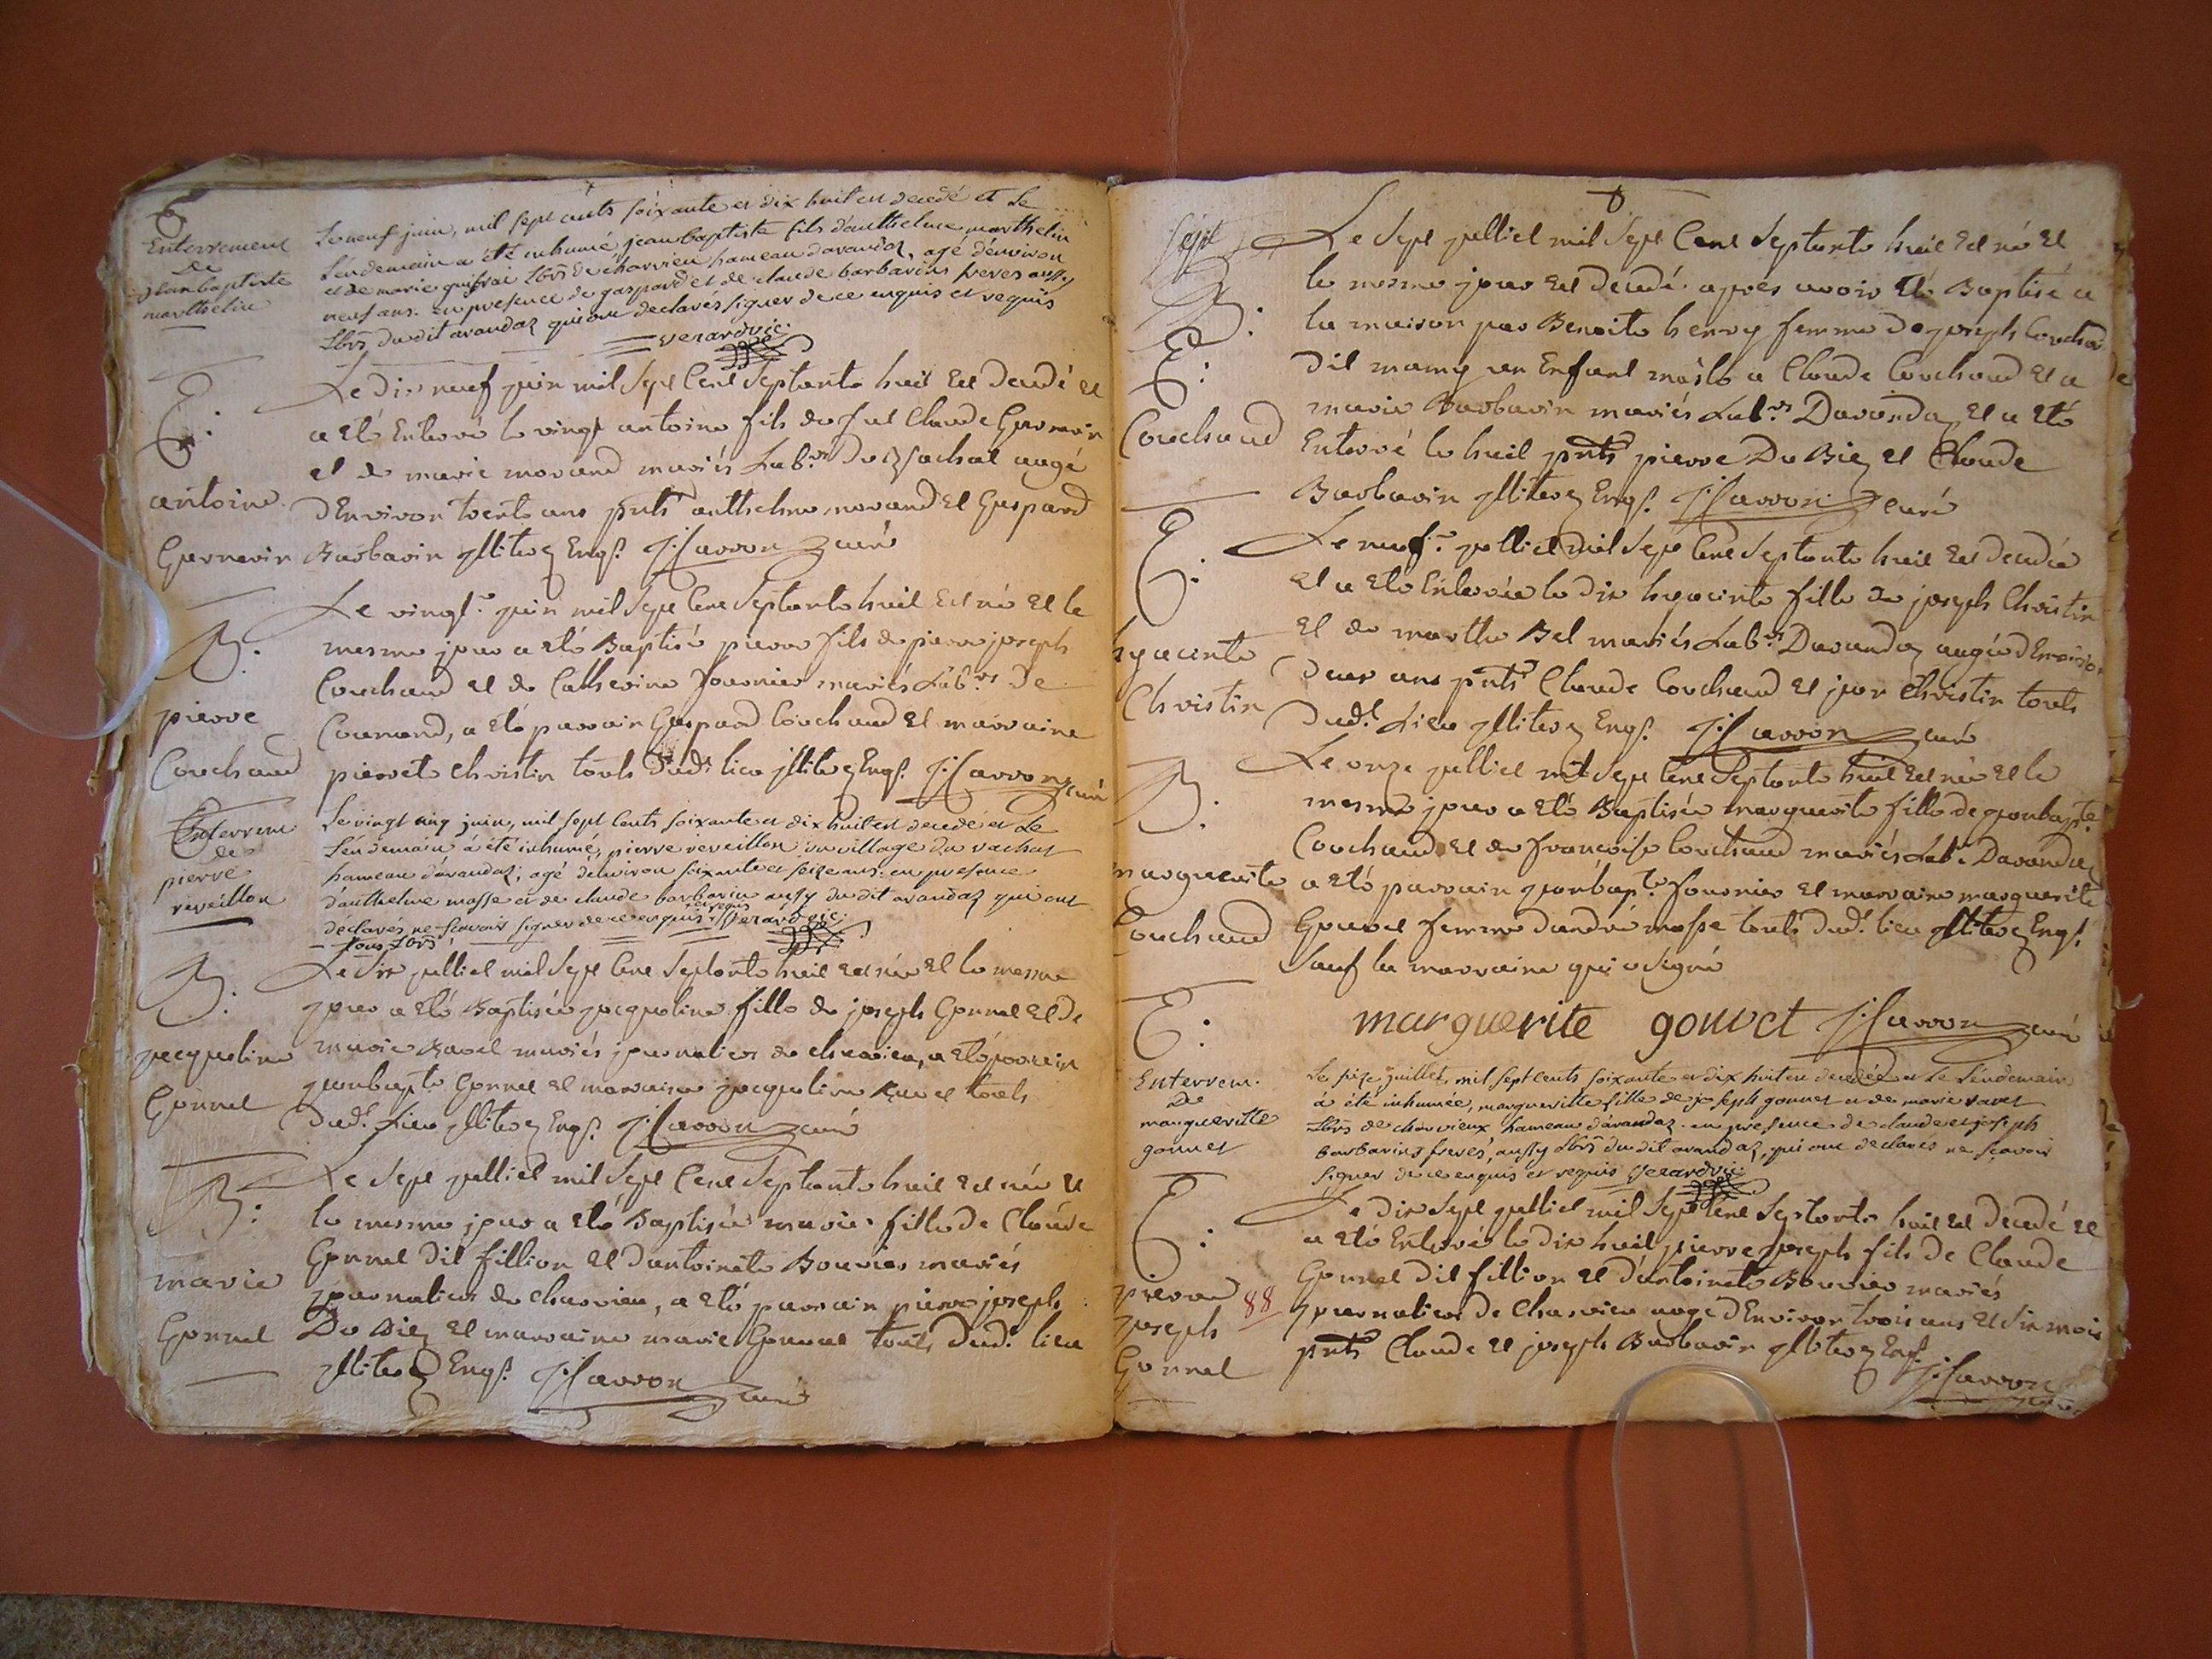 Enterrement
De
jean baptiste
marthelin
Le neuf juin, mil sept cents soixante et dix huit est decedé et Le
Lendemain a été inhumé jean baptiste fils d'anthelme marthelin
et de marie guifrai Lbrs de charvieu hameau d'arandaz, agé d'environ
neuf ans. en presence de gaspard et de claude barbarins freres aussy
Lbrs du dit arandaz qui ont declarés signer de ce enquis et requis
verard vic:
E:
antoine
Garnerin
Le dix neuf juin mil Sept Cent Septante huit Est decedé et
a Eté Enterré le vingt antoine fils de feu Claude Garnerin
et de marie morand mariés Labrs du Vachat aagé
d'Environ trente ans pnts anthelme morand Et Gaspard
Barbarin illiterez Enqs. J: Carron curé
B:
pierre
Couchaud
Le vingt juin mil Sept Cent Septante huit Est né Et le
mesme jour a Eté Baptisé pierre fils de pierre joseph
Couchaud et de Catherine fournier mariés Labrs de
Counand, a Eté parrain Gaspard Couchaud Et marraine
pierrete Christin touts dudt lieu illiterez Enqs. J: Carron curé
Enterrem.
de
pierre
reveillon
Le vingt cinq juin, mil sept cents soixante et dix huit est decedé et Le
Lendemain à été inhumé, pierre reveillon du village du vachat
hameau d'arandaz, agé d'environ soixante et seize ans. en presence
d'anthelme masse et de claude barbarin aussy du dit arandaz qui ont
déclarés ne scavoir signer de ce enquis et requis verard vic:
tous Lbrs
B:
jacqueline
Gonnet
Le Six julliet mil Sept Cent Septante huit Est née Et le mesme
jour a Eté Baptisée jacqueline fille de joseph Gonnet Et de
marie Ravet mariés journaliers de charvieu, a Eté parrain
jeanbapte Gonnet Et marraine jacqueline Ravet touts
dudt. Lieu illiterez Enqs. J: Carron curé
B:
marie
Gonnet
Le Sept julliet mil Sept Cent Septante huit Est née Et
le mesme jour a Eté Baptisée marie fille de Claude
Gonnet dit fillion Et d'antoinete Bouvier mariés
journaliers de charvieu, a Eté parrain pierre joseph
Du Biez Et marraine marie Gonnet touts dudt. lieu
illiterez Enqs. J: Carron curé
Sept
B:
E:
Couchaud
Le Sept julliet mil Sept Cent Septante huit Est né Et
le mesme jour Est decedé apres avoir Eté Baptisé a
la maison par Benoite henry femme de joseph Couchaud
dit mamy un Enfant mâsle a Claude Couchaud Et a
marie Barbarin mariés Labrs Darandaz Et a Eté
Enterré le huit pnts pierre Du Biez Et Claude
Barbarin illiterez Enqs. J: Carron curé
E:
hyacinte
Christin
Le neuf julliet mil Sept Cent Septante huit Est decedée
Et a Eté Enterrée le dix hyacinte fille de joseph Christin
Et de marthe Bel mariés Labrs Darandaz aagée d'Environ
deux ans pnts Claude Couchaud Et jean Christin touts
dudt. Lieu illiterez Enqs. J: Carron curé
B:
marguerite
Couchaud
Le onze julliet mil Sept Cent Septante huit Est née Et le
mesme jour a Eté Baptisée marguerite fille de jeanbapte
Couchaud Et de francoise Couchaud mariés Labrs Darandaz
a Eté parrain jeanbapte fournier Et marraine marguerite
Gouvet femme d'andré masse touts dudt. lieu illiterez Enqs.
Sauf la marraine qui a Signé
marguerite gouvet J: Carron curé
E:
Enterrem.
De
margueritte
gonnet
Le seize juillet, mil sept cents soixante et dix huit est decedée et Le Lendemain
à été inhumée, margueritte fille de joseph gonnet et de marie ravet
Lbrs de charvieux hameau d'arandaz. en presence de claude et joseph
barbarins freres, aussy Lbrs du dit arandaz, qui ont declarés ne scavoir
signer de ce enquis et requis verard vic:
E:
pierre
joseph
Gonnet
88
Le dix Sept julliet mil Sept Cent Septante huit Est decedé Et
a Eté Enterré le dix huit pierre joseph fils de Claude
Gonnet dit fillion Et d'antoinete Bouvier mariés
journaliers de Charvieu aagé d'Environ trois ans Et Six mois
pnts Claude Et joseph Barbarin illiterez Enqs.
J: Carron
curé